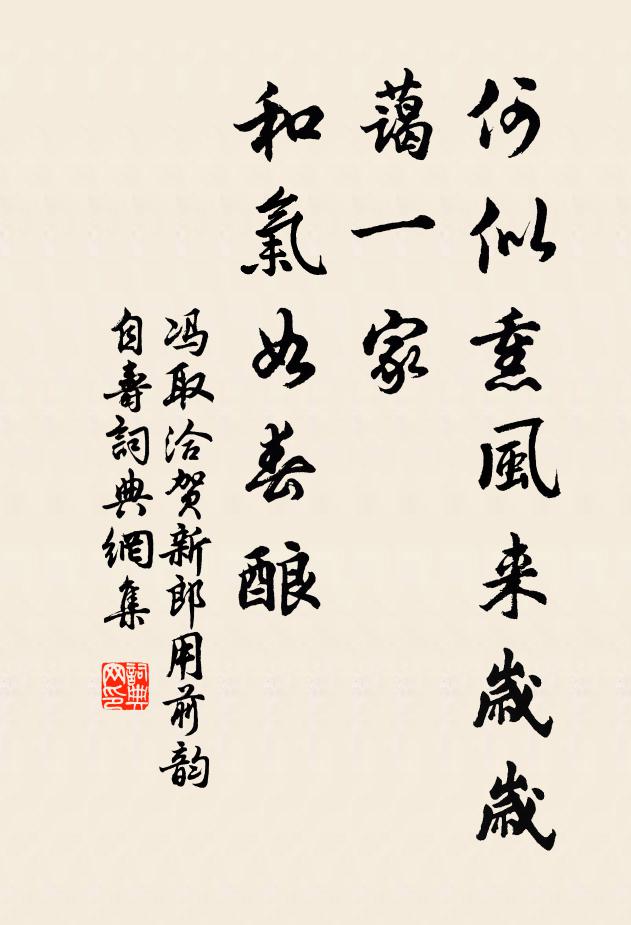 何似熏風来歲歲
藹一家
和氣如春酿
冯取洽贺新郎用前韵
自壽詞典網集
詞典网印